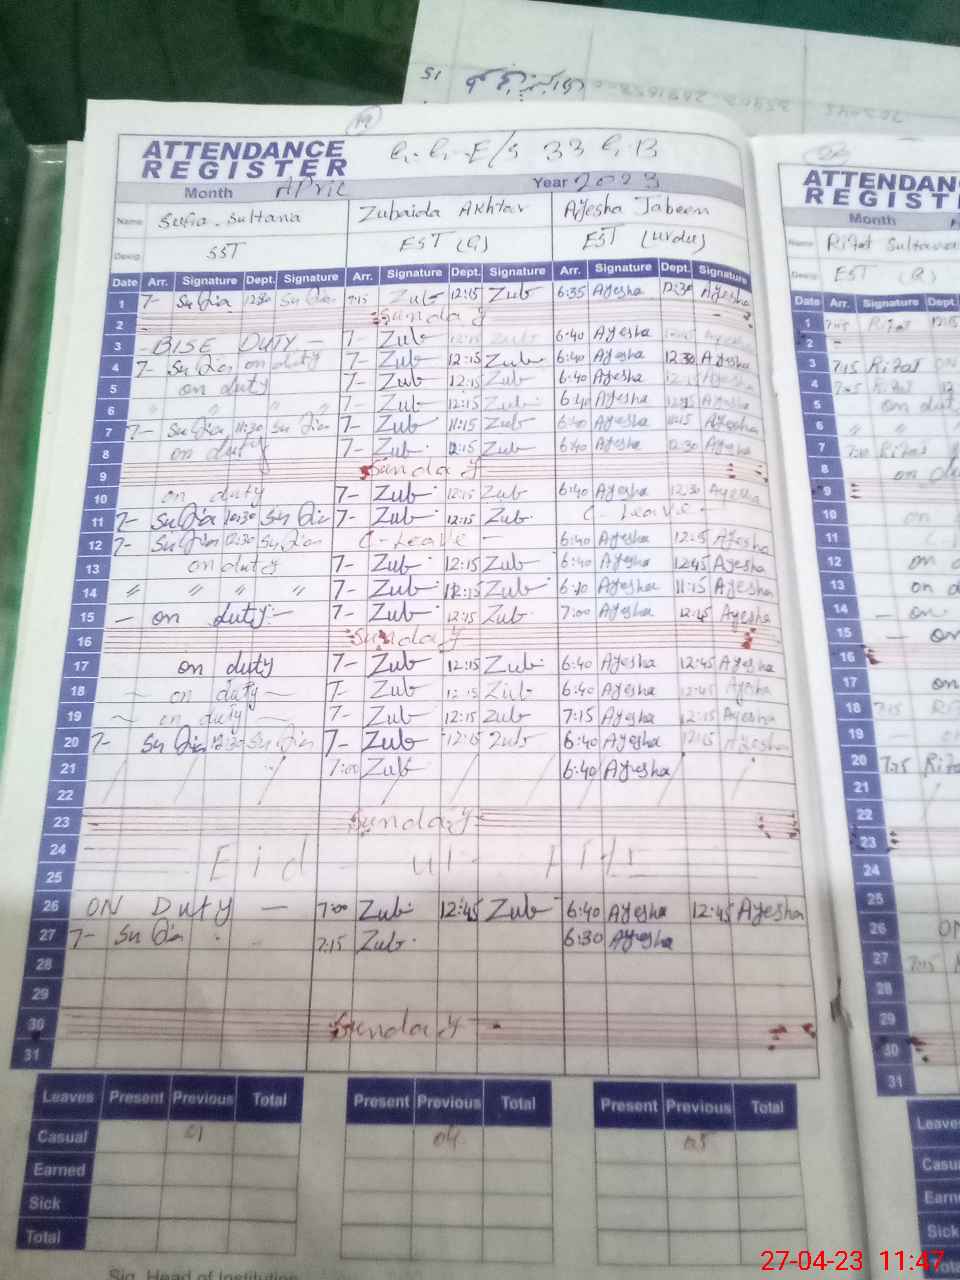 19
ATTENDANCE REGISTER
G.G.E/S 33 G.B
Month April Year 2023
Name Sufia Sultana Zubaida Akhtar Ayesha Jabeen
Desig. SST EST (G) EST (Urdu)
Date Arr. Signature Dept. Signature Arr. Signature Dept. Signature Arr. Signature Dept. Signature
1 7- Sufia 12:30 Sufia 7:15 Zub 12:15 Zub 6:35 Ayesha 12:30 Ayesha
2 Sunday
3 - BISE DUTY - 7- Zub 6:40 Ayesha
4 7- Sufia on duty 7- Zub 12:15 Zub 6:40 Ayesha 12:30 Ayesha
5 on duty 7- Zub 12:15 Zub 6:40 Ayesha Ayesha
6 " " " " 7- Zub 12:15 Zub 6:40 Ayesha 12:45 Ayesha
7 7- Sufia 11:30 Sufia 7- Zub 11:15 Zub 6:40 Ayesha 11:15 Ayesha
8 on duty 7- Zub 12:15 Zub 6:40 Ayesha 12:30 Ayesha
9 Sunday
10 on duty 7- Zub 12:15 Zub 6:40 Ayesha 12:30 Ayesha
11 7- Sufia 12:30 Sufia 7- Zub 12:15 Zub C-Leave -
12 7- Sufia 12:30 Sufia C-Leave - 6:40 Ayesha 12:15 Ayesha
13 on duty 7- Zub 12:15 Zub 6:40 Ayesha 12:45 Ayesha
14 " " " " 7- Zub 12:15 Zub 6:40 Ayesha 11:15 Ayesha
15 - on duty - 7- Zub 12:15 Zub 7:00 Ayesha 12:45 Ayesha
16 Sunday
17 on duty 7- Zub 12:15 Zub 6:40 Ayesha 12:45 Ayesha
18 - on duty - 7- Zub 12:15 Zub 6:40 Ayesha 12:45 Ayesha
19 - on duty - 7- Zub 12:15 Zub 7:15 Ayesha 12:15 Ayesha
20 7- Sufia 12:30 Sufia 7- Zub 12:15 Zub 6:40 Ayesha 12:15 Ayesha
21 7:00 Zub 6:40 Ayesha
22
23 Sunday
24
25 Eid - ul - Fitr
26 ON Duty - 7:00 Zub 12:45 Zub 6:40 Ayesha 12:45 Ayesha
27 7- Sufia 7:15 Zub 6:30 Ayesha
28
29
30 Sunday
31
Leaves Present Previous Total Present Previous Total Present Previous Total
Casual 01 04 05
Earned
Sick
Total
Sig. Head of Institution
ATTENDAN
REGIST
Month
Name Rifat Sultana
Desig. EST (G)
Date Arr. Signature Dept.
1 7:15 Rifat 12:15
2 -
3 7:15 Rifat ON
4 7:15 Rifat 12
5 on dut
6 " "
7 7:10 Rifat
8 on du
9
10 on
11
12 on
13 on d
14 - on
15 - on
16
17 on
18 7:15
19 -
20 7:15 Rifa
21
22
23
24
25
26 ON
27 7:15
28
29
30
31
Leaves
Casu
Earn
Sick
Tota
27-04-23 11:47